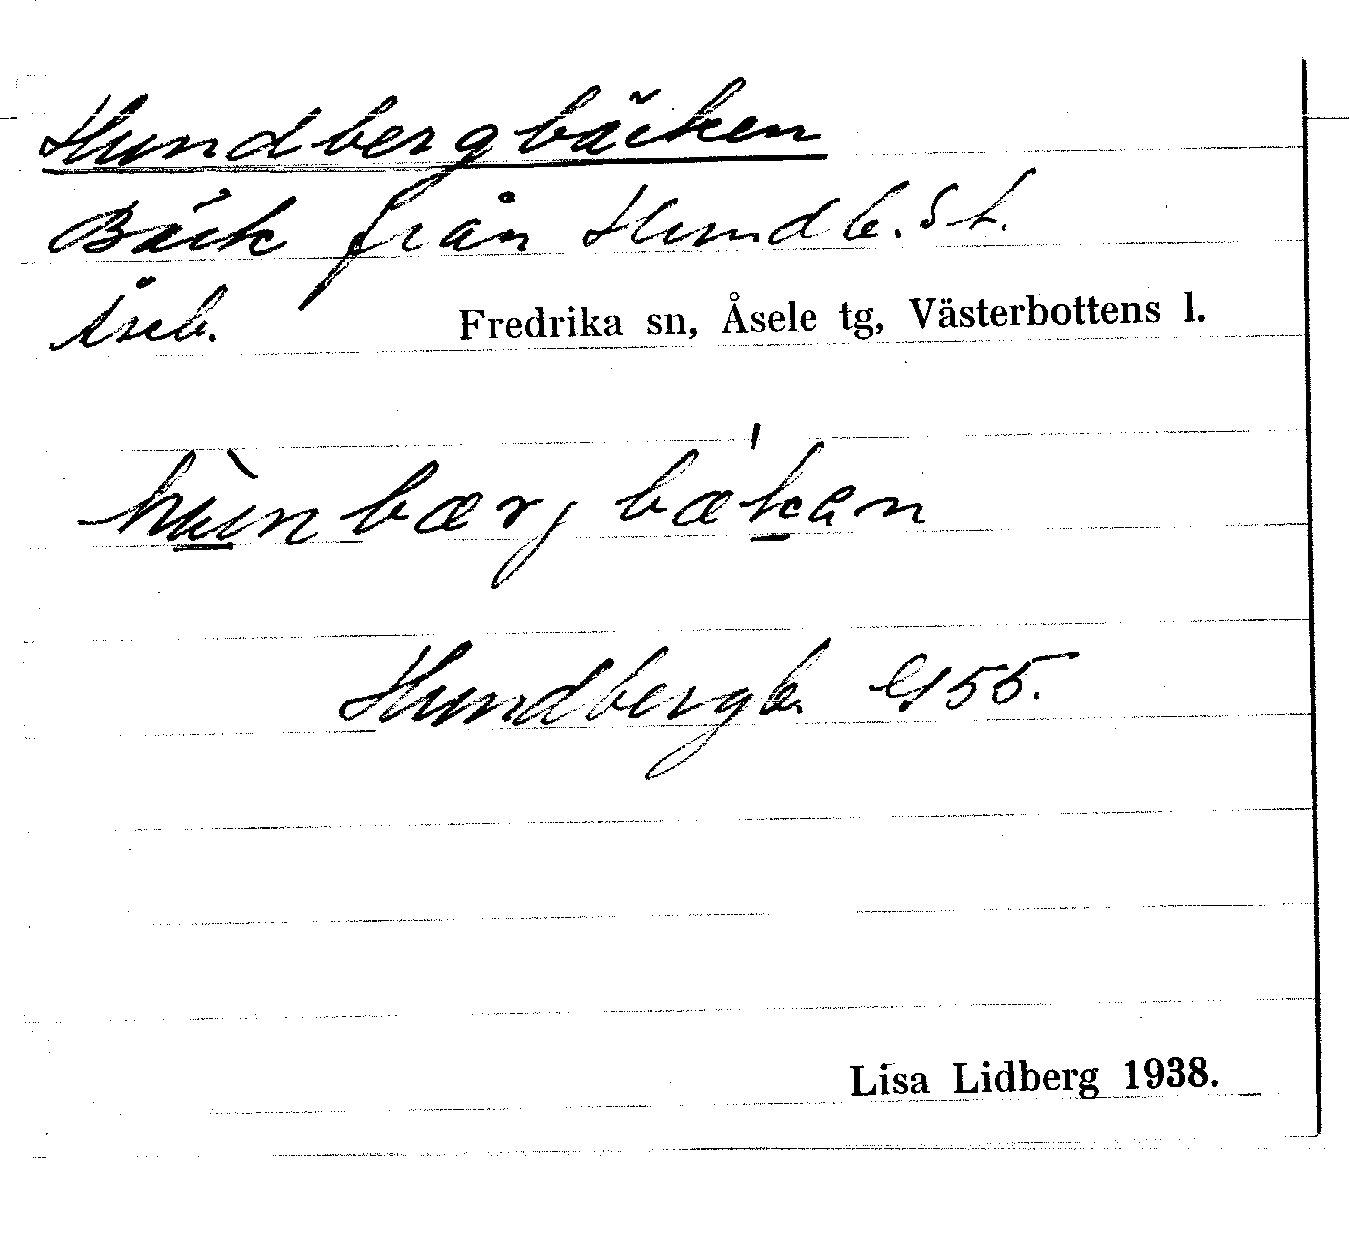 Hundbergbäcken
Bäck från Hundb.st.
Åseb.
Fredrika sn, Åsele tg, Västerbottens l.
hùnbærjbæ'kan
Hundbergb. G55.
Lisa Lidberg 1938.